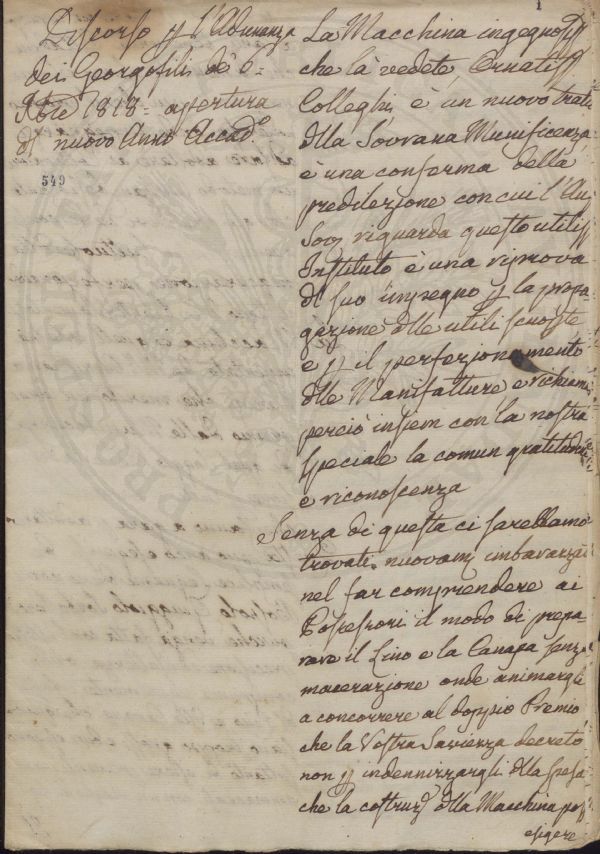 1
Discorso p l'Adunanza
dei Georgofili de 6.
9bre 1818. apertura
del nuovo Anno Accad.
549
La Macchina ingegnosiss
che là vedete Ornatiss
Colleghi è un nuovo tratto
dlla Sovrana Munificenza
è una conferma della
predilezione con cui l'Au
Sov riguarda questo utiliss
Instituto è una riprova
di suo impegno p la propa
gazione dlle utili scuopte
e p il perfezionamento
dlle Manifatture e richiama
perciò insiem con la nostra
speciale la comun gratitudine
e riconoscenza
Senza di questa ci sarebbamo
trovati nuovam imbarazzati
nel far comprendere ai
Possessori il modo di prepa
rare il Lino e la Canapa senza
macerazione onde animargli
a concorrere al doppio Premio
che la Vostra Savienza decretò
non p indennizzargli dlla spesa
che la costruz dlla Macchina poss
esigere